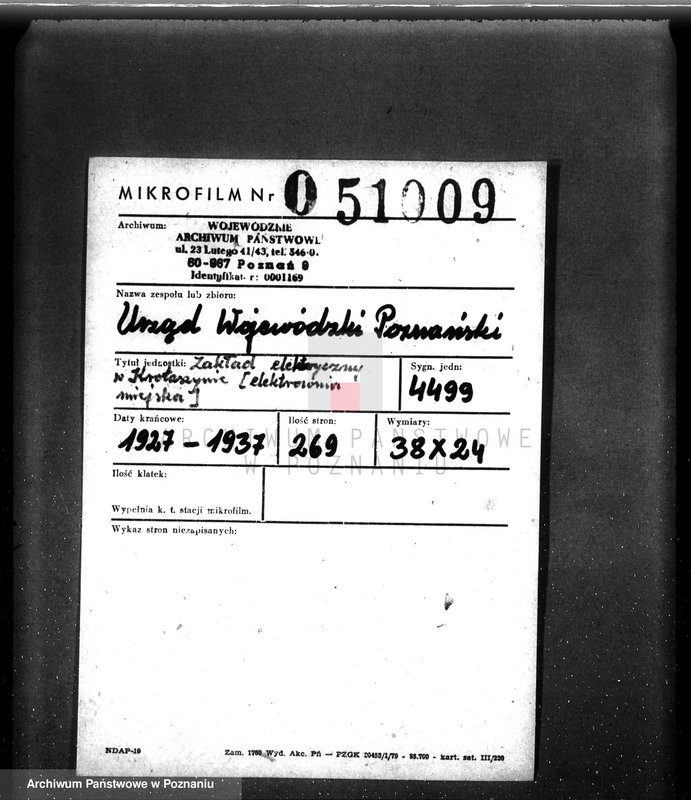 MIKROFILM Nr 051009
Archiwum:
WOJEWÓDZKIE
ARCHIWUM PAŃSTWOWE
ul. 23 Lutego 41/43, tel. 546-0.
60-967 Poznań 9
Identyfikat. r: 0001169
Nazwa zespołu lub zbioru:
Urząd Wojewódzki Poznański
Tytuł jednostki: Zakład elektryczny
w Krotoszynie [elektrownia
miejska]
Sygn. jedn:
4499
Daty krańcowe:
1927 – 1937
Ilość stron:
269
Wymiary:
38x24
ARCHIWUM PAŃSTWOWE
W POZNANIU
Ilość klatek:
Wypełnia k. t. stacji mikrofilm.
Wykaz stron niezapisanych:
NDAP-10
Zam. 1760 Wyd. Akc. Pń — PZGK 20453/1/79 - 85.700 - kart. sat. III/220
Archiwum Państwowe w Poznaniu